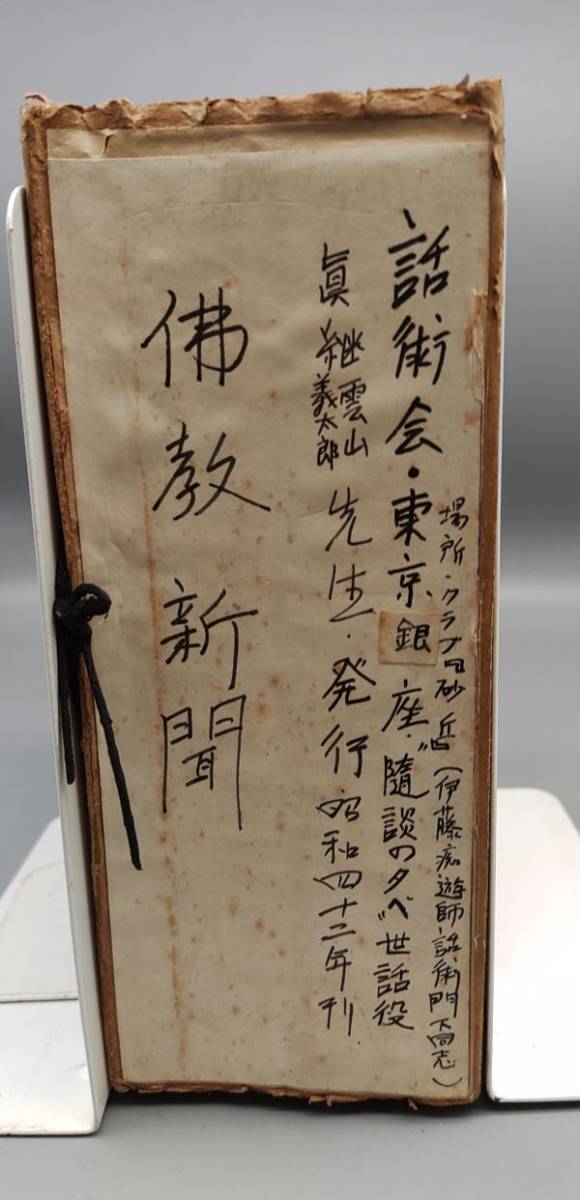 場所・クラブ日砂丘(伊藤痴遊師・話術門下同志)
話術会・東京銀座・〝随談の夕べ〞世話役
眞継雲山
義太郎
先生・発行 昭和四十二年刊
佛教新聞